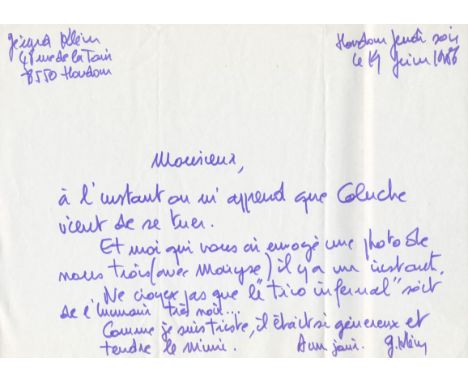 Gérard Klein
rue de la Tour
78550 Houdan
Houdan Jeudi soir
le 19 Juin 1986
Monsieur,
à l'instant on m'apprend que Coluche
vient de se tuer.
Et moi qui vous ai envoyé une photo de
nous trois (avec Maryse) il y a un instant.
Ne croyez pas que le "trio infernal" soit
de l'humour très noir...
Comme je suis triste, il était si généreux et
tendre le mimi. A un jour. G. Klein